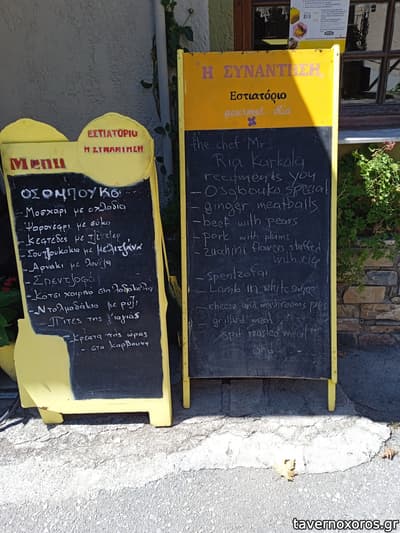 ΕΣΤΙΑΤΟΡΙΟ
Η ΣΥΝΑΝΤΗΣΗ
Menu
ΟΣΟΜΠΟΥΚΟ
- Μοσχάρι με αχλάδια
- Ψαρονέφρι με σύκο
- Κεφτέδες με τζίντζερ
- Σουτζουκάκια με μελιτζάνα
- Αρνάκι με
- Σπεντζοφάι
- Κοτσι χοιρινο στη λαδόκολλα
- Ντολμαδάκια με ρύζι
- Πίτες της γιαγιάς
- Κρέατα της ώρας
- στα κάρβουνα
Η ΣΥΝΑΝΤΗΣΗ
Εστιατόριο
the chef Mr
Ρίζα
recomends you
- Osobouko special
- ginger meatballs
- beef with pears
- pork with plums
- zuchini flowers stuffed
with rice
- spentzofai
- Lamb in white sauce
- cheese and mushrooms pies
- grilled meat
- spit roasted meat
tavernoxoros.gr